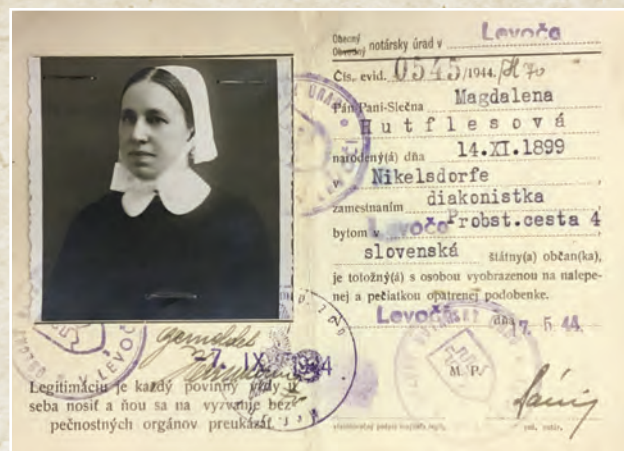 Obecný
Obvodný notársky úrad v Levoča
Čís. evid. 0545/1944.
Pán-Pani-Slečna Magdalena
Hutflesová
narodený(á) dňa 14.XI.1899
Nikelsdorfe
zamestnaním diakonistka
bytom v Levoča Probst.cesta 4
slovenská štátny(a) občan(ka),
je totožný(á) s osobou vyobrazenou na nalepe-
nej a pečiatkou opatrenej podobenke.
Levoča dňa 7. 44.
M. P.
gemeldet
7. IX 1944
Legitimáciu je každý povinný vždy u
seba nosiť a ňou sa na vyzvanie bez-
pečnostných orgánov preukázať.
V LEVOČI